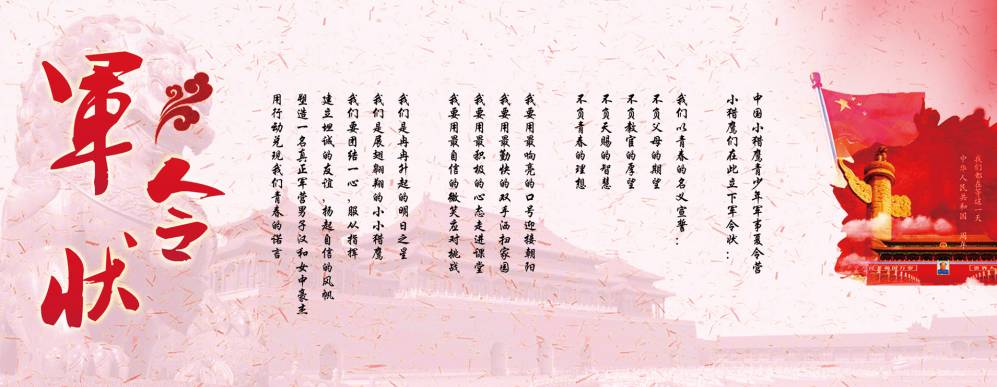 軍令状
中国小猎鹰青少年军事夏令营
小猎鹰们在此立下军令状：
我们以青春的名义宣誓：
不负父母的期望
不负教官的厚望
不负天赐的智慧
不负青春的理想
我要用最响亮的口号迎接朝阳
我要用最勤快的双手洒扫家园
我要用最积极的心态走进课堂
我要用最自信的微笑应对挑战
我们是冉冉升起的明日之星
我们是展翅翱翔的小小猎鹰
我们要团结一心,服从指挥
建立坦诚的友谊,扬起自信的风帆
塑造一名真正军营男子汉和女中豪杰
用行动兑现我们青春的诺言
我们都在等这一天
中华人民共和国 周年